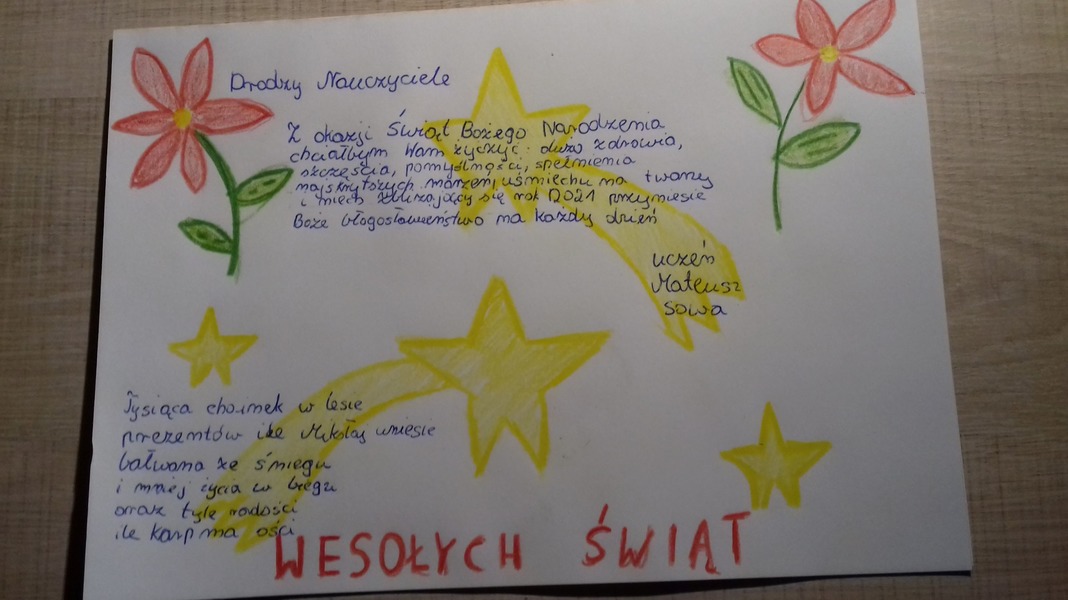 Drodzy Nauczyciele
Z okazji Świąt Bożego Narodzenia
chciałbym Wam życzyć: dużo zdrowia,
szczęścia, pomyślności, spełnienia
najskrytszych marzeń, uśmiechu na twarzy
i niech zbliżający się rok 2021 przyniesie
Boże błogosławieństwo na każdy dzień
uczeń
Mateusz
Sowa
Tysiąca choinek w lesie
prezentów ile Mikołaj uniesie
bałwana ze śniegu
i mniej życia w biegu
oraz tyle radości
ile karp ma ości
WESOŁYCH ŚWIĄT